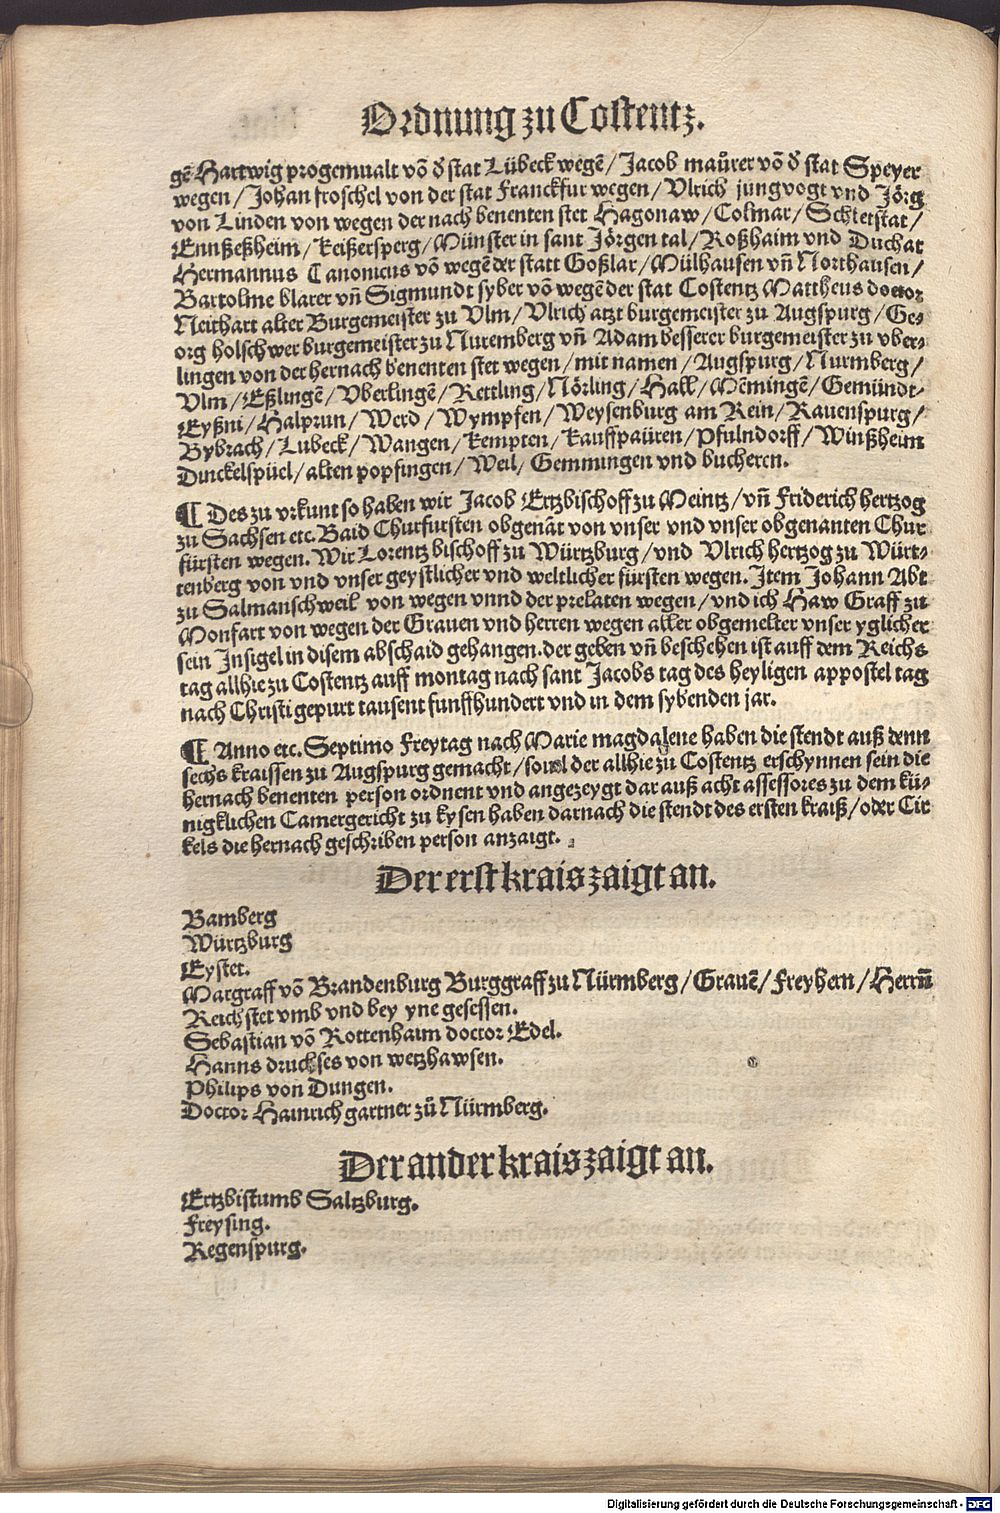 Ordnung zu Costentz.
gē Hartwig progemualt vō d̕ stat Lübeck wegē / Jacob maůrer vō d̕ stat Speyer
wegen / Johan froschel von der stat Franckfur wegen / Vlrich jungvogt vnd Jörg
von Linden von wegen der nach benenten stet Hagonaw / Colmar / Schletstat /
Ennßeßheim / keißersperg / Münster in sant Jörgen tal / Roßhaim vnd Duchat
Hermannus Canonicus vō wegē der statt Goßlar / Mülhausen vn̄ Northausen /
Bartolme blarer vn̄ Sigmundt syber vō wegē der stat Costentz Mattheus doctor
Neithart alter Burgemeister zu Vlm / Vlrich artzt burgemeister zu Augspurg / Ge-
org holschwer burgemeister zu Nuremberg vn̄ Adam besserer burgemeister zu vber-
lingen von der hernach benenten stet wegen / mit namen / Augspurg / Nurmberg /
Vlm / Eßlingē / Vberlingē / Rettling / Nörling / Hall / Mēmingē / Gemündt-
Eyßni / Halprun / Werd / Wympfen / Weysenburg am Rein / Rauenspurg /
Bybrach / Lubeck / Wangen / kempten / kauffpaüren / Pfulndorff / Winßheim
Dinckelspüel / alten popfingen / Weil / Gemmingen vnd bucheren.
¶ Des zu vrkunt so haben wir Jacob Ertzbischoff zu Meintz / vn̄ Friderich hertzog
zu Sachsen etc. Baid Churfursten obgenāt von vnser vnd vnser obgenanten Chur
fürsten wegen. Wir Lorentz bischoff zu Würtzburg / vnd Vlrich hertzog zu Würt-
tenberg von vnd vnser geystlicher vnd weltlicher fürsten wegen. Item Johann Abt
zu Salmanschweil von wegen vnnd der prelaten wegen / vnd ich Haw Graff zu
Monfart von wegen der Grauen vnd herren wegen aller obgemelter vnser yglicher
sein Insigel in disem abschaid gehangen. der geben vn̄ beschehen ist auff dem Reichs
tag allhie zu Costentz auff montag nach sant Jacobs tag des heyligen appostel tag
nach Christi gepurt tausent funffhundert vnd in dem sybenden jar.
¶ Anno etc. Septimo Freytag nach Marie magdalene haben die stendt auß denn
sechs kraissen zu Augspurg gemacht / souel der allhie zu Costentz erschynnen sein die
hernach benenten person ordnent vnd angezeygt dar auß acht assessores zu dem kü-
nigklichen Camergericht zu kysen haben darnach die stendt des ersten kraiß / oder Cir
kels die hernach geschriben person anzaigt.
Der erst krais zaigt an.
Bamberg
Würtzburg
Eystet.
Margraff vō Brandenburg Burggraff zu Nürmberg / Grauē / Freyhern / Herrn̄
Reichstet vmb vnd bey yne gesessen.
Sebastian vō Rottenhaim doctor Edel.
Hanns druchses von wetzhawsen.
Philips von Dungen.
Doctor Hainrich gartner zů Nürmberg.
Der ander krais zaigt an.
Ertzbistumb Saltzburg.
Freysing.
Regenspurg.
Digitalisierung gefördert durch die Deutsche Forschungsgemeinschaft - DFG